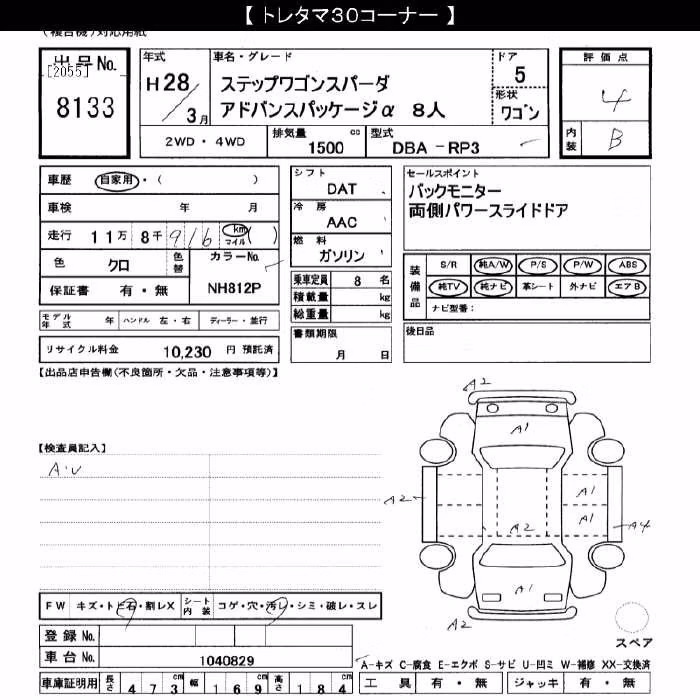 【 トレタマ30コーナー 】
(複合機)対応用紙
出品No.
[2055]
8133
年式
H28/3月
車名・グレード
ステップワゴンスパーダ
アドバンスパッケージα 8人
ドア
5
形状
ワゴン
2WD・4WD
排気量
1500 cc
型式
DBA -RP3
評価点
4
内装
B
車歴 自家用・( )
車検 年 月
走行 11万 8千 916 km マイル ( )
色 クロ 色替
カラーNo.
NH812P
保証書 有・無
シフト
DAT
冷房
AAC
燃料
ガソリン
乗車定員 8 名
積載量 kg
総重量 kg
セールスポイント
バックモニター
両側パワースライドドア
装備品
S/R 純A/W P/S P/W ABS
純TV 純ナビ 革シート 外ナビ エアB
ナビ型番:
モデル年式 年 ハンドル 左・右 ディーラー・並行
リサイクル料金 10,230 円 預託済
書類期限
月 日
後日品
【出品店申告欄(不良箇所・欠品・注意事項等)】
【検査員記入】
A・U
A2
A1
A2
A1
A1
A2
A4
A1
A2
スペア
FW キズ・トビ石・割レX シート内装 コゲ・穴・汚レ・シミ・破レ・スレ
登録No.
車台No. 1040829
A-キズ C-腐食 E-エクボ S-サビ U-凹ミ W-補修 XX-交換済
車庫証明用 長さ 473cm 幅 169cm 高さ 184cm
工具 有・無 ジャッキ 有・無